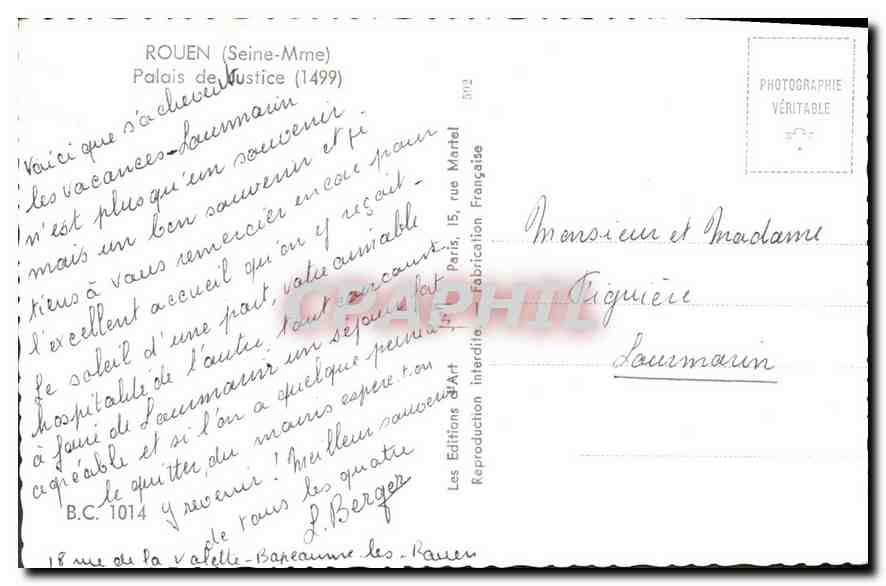 ROUEN (Seine-Mme)
Palais de Justice (1499)
Voici que s'achèvent
les vacances - Lourmarin
n'est plus qu'un souvenir
mais un bon souvenir et je
tiens à vous remercier encore pour
l'excellent accueil qu'on y reçoit -
Le soleil d'une part, votre aimable
hospitalité de l'autre, tout concourt
à faire de Lourmarin un séjour fort
agréable et si l'on a quelque peine à
le quitter, du moins espère-t-on
y revenir! Meilleur souvenir
de tous les quatre
L. Berger
B.C. 1014
18 rue de la Valette - Bapeaume les - Rouen
Les Editions d'Art Paris, 15, rue Martel
Reproduction interdite. Fabrication Française
592
PHOTOGRAPHIE
VÉRITABLE
Monsieur et Madame
Figuière
Lourmarin
CPAPHIL